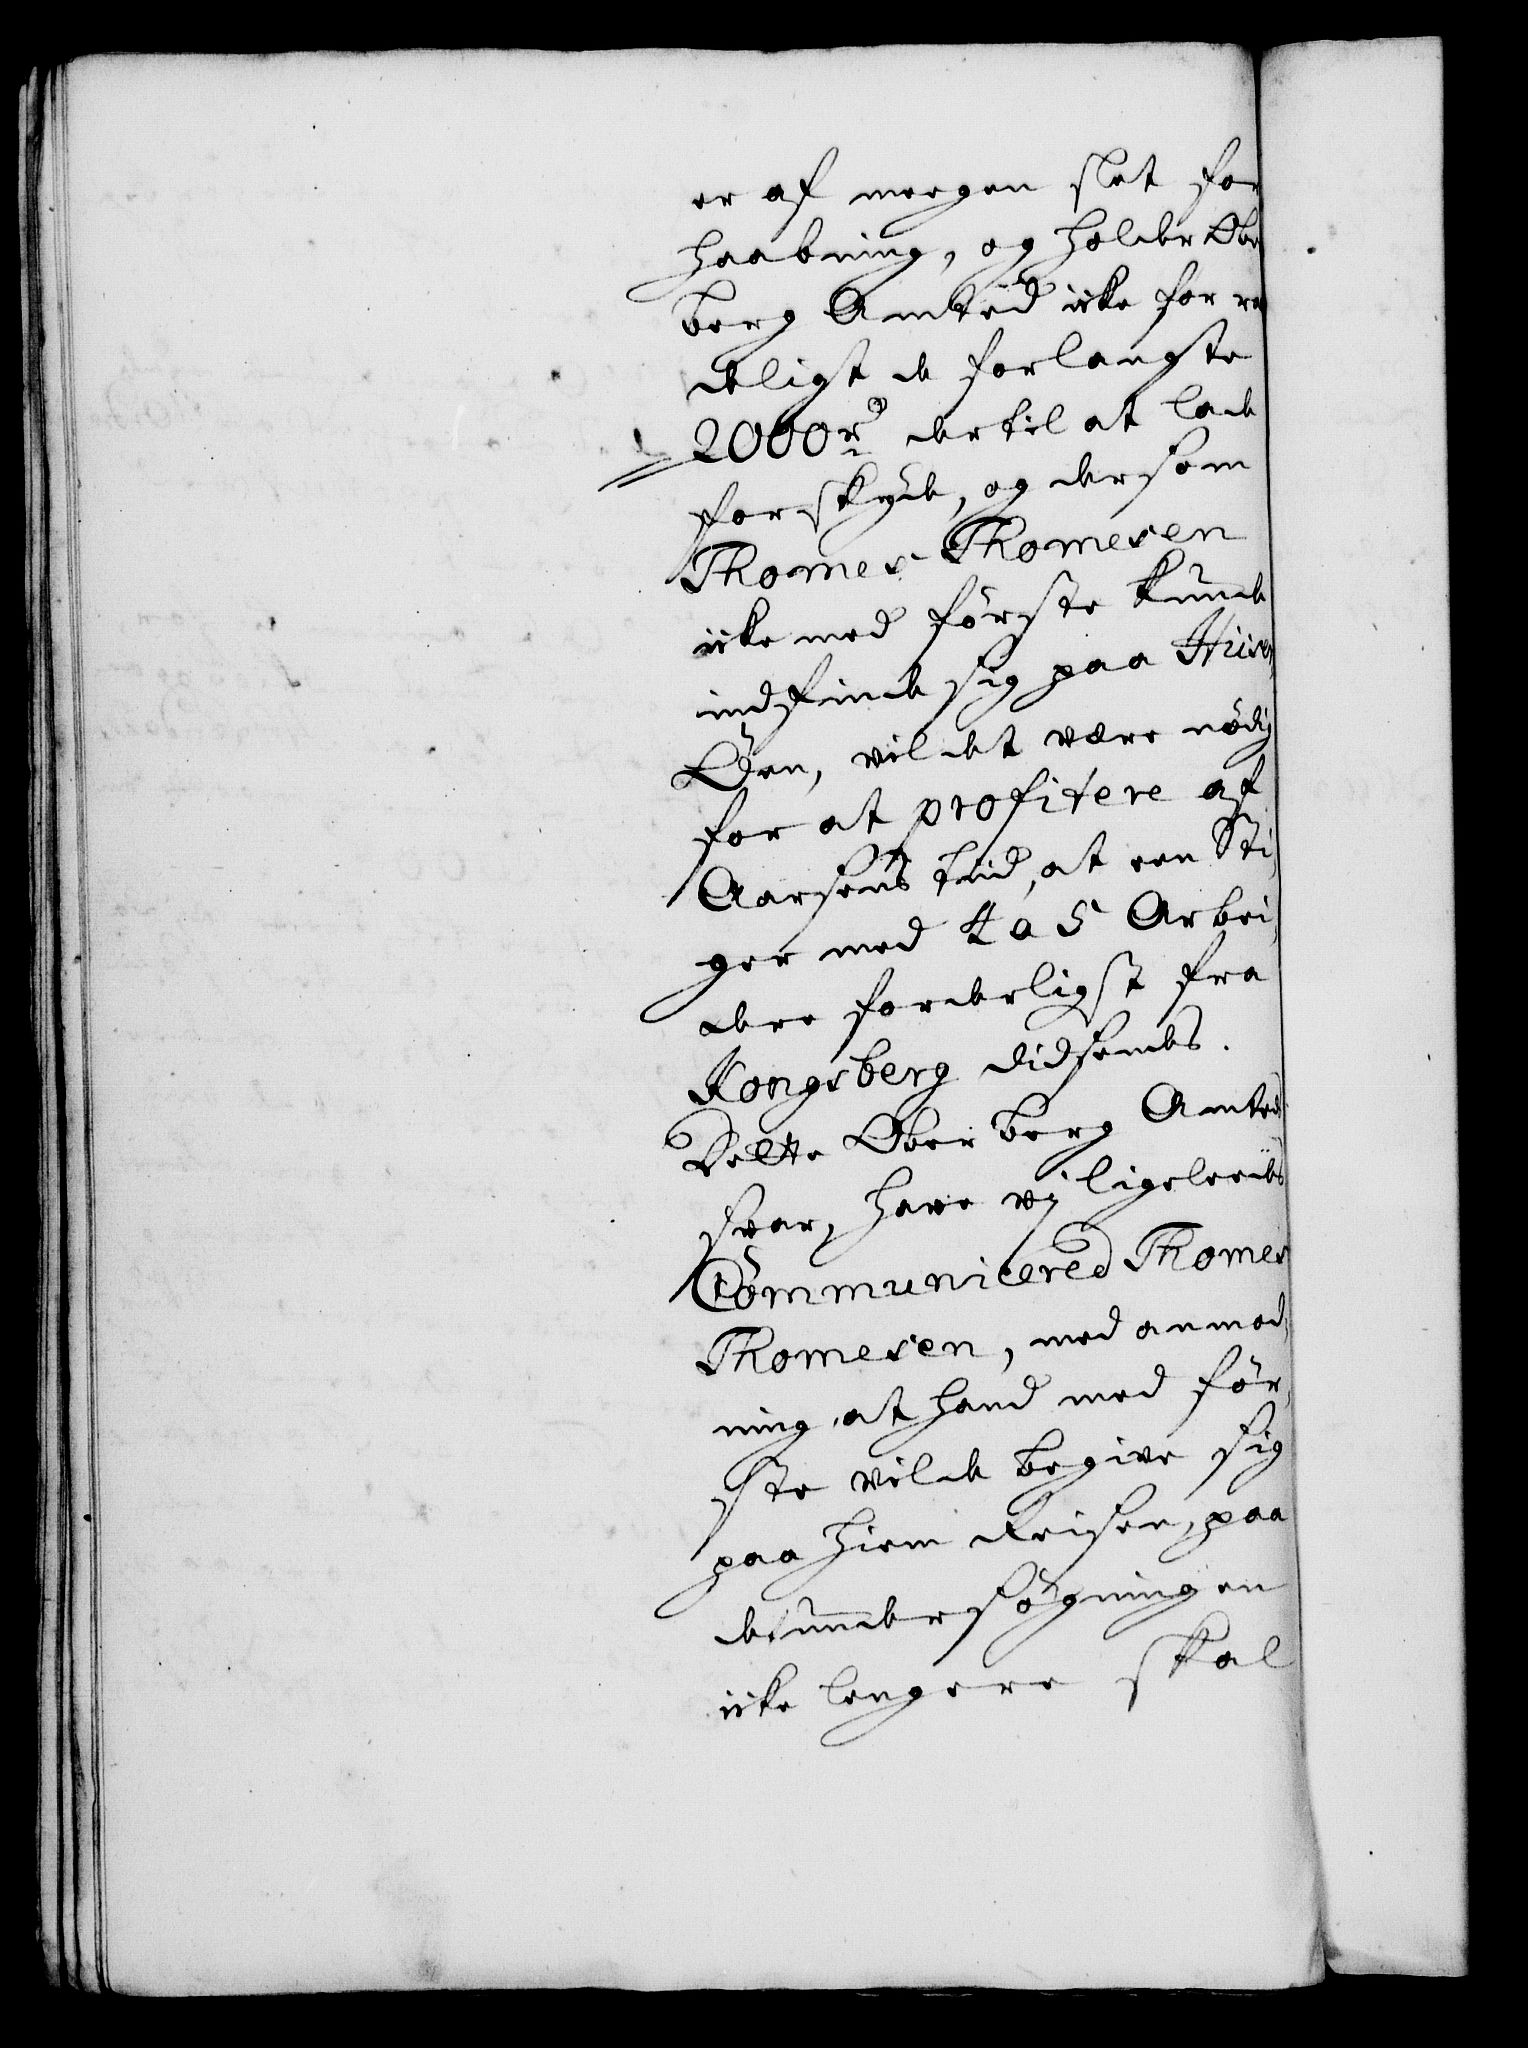 er af meegen slet for
haabning, og holder Obe
berg Amted icke for ra
deligt de forlangte
2000 rd dertil at lade
forskyde, og dersom
Thomes Thomesen
icke med første kunde
indfinde sig paa
Øen, vil det være nødig
for at profitere af
Aarsens tiid, at een Sti,
ger med 4 a 5 Arbei,
dere forderligst fra
Kongsberg didsendes.
Dette Ober berg Amtes
svar, have vj ligeleedes
Communicered Thomes
Thomesen, med anmod,
ning, at hand med før,
ste vilde begive sig
paa Hiem Reisen, paa
det undersøgningen
icke lengere skal